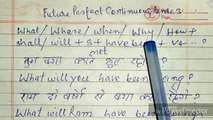 Future Perfect Continuous Tense 3
What / Where / When / Why / How +
shall / will + S + have been + V4 ...?
तुम क्या करते रहे होगे
What will you have been doing?
राम दो वर्षों से क्या करता रहेगा
What will Ram have been